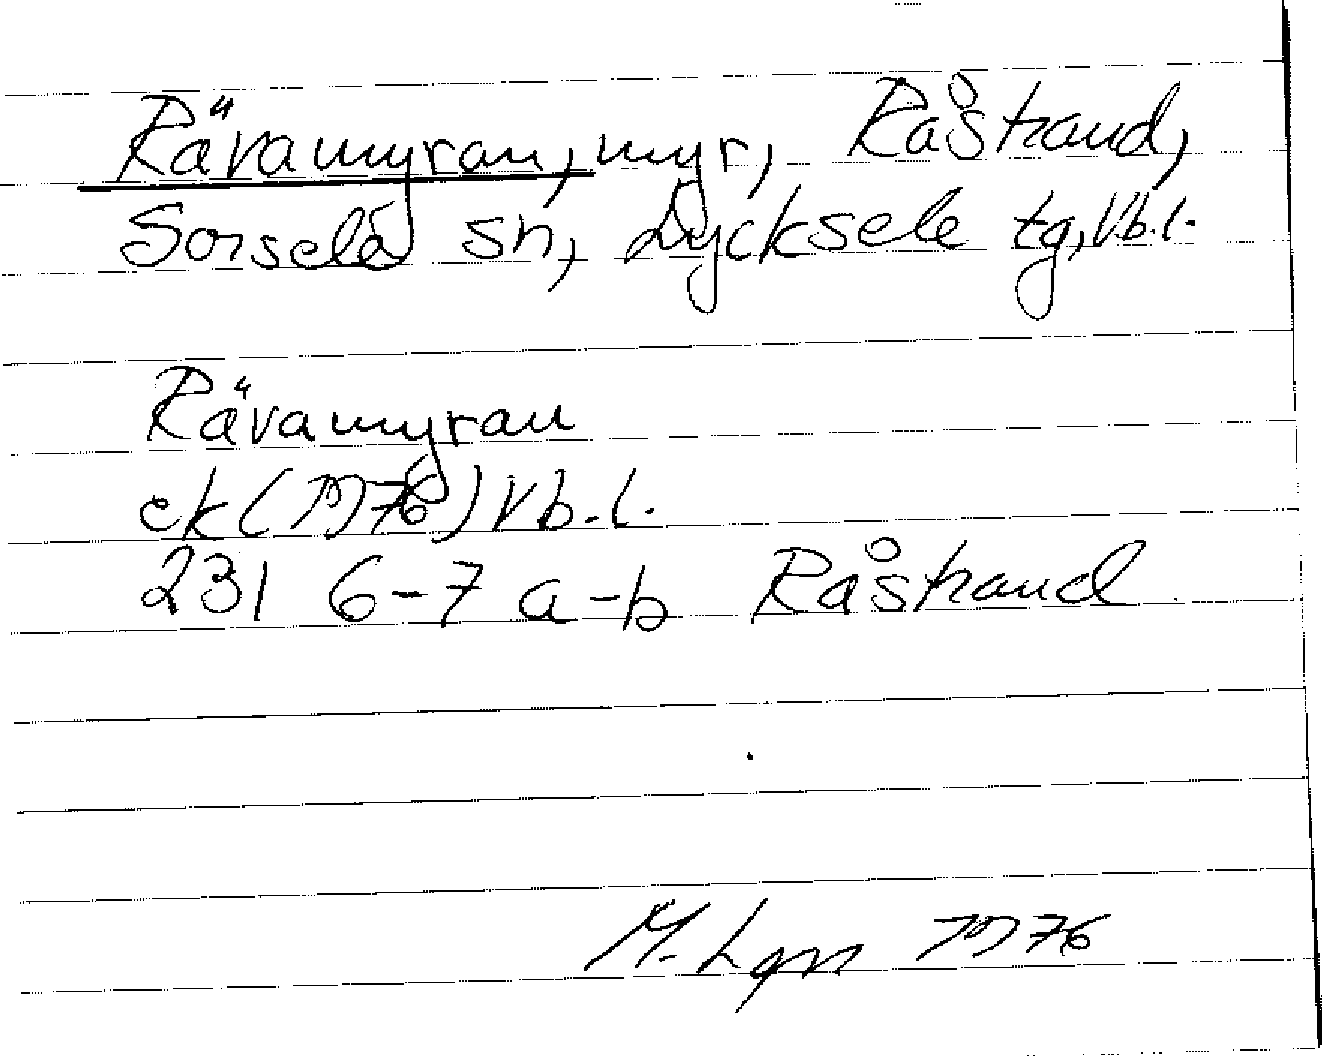 Rävamyran, myr, Råstrand,
Sorsele sn, Lycksele tg, Vb.l.
Rävamyran
ek (1976) Vb.l.
23I 6-7 a-b Råstrand
M. Lgn 1976